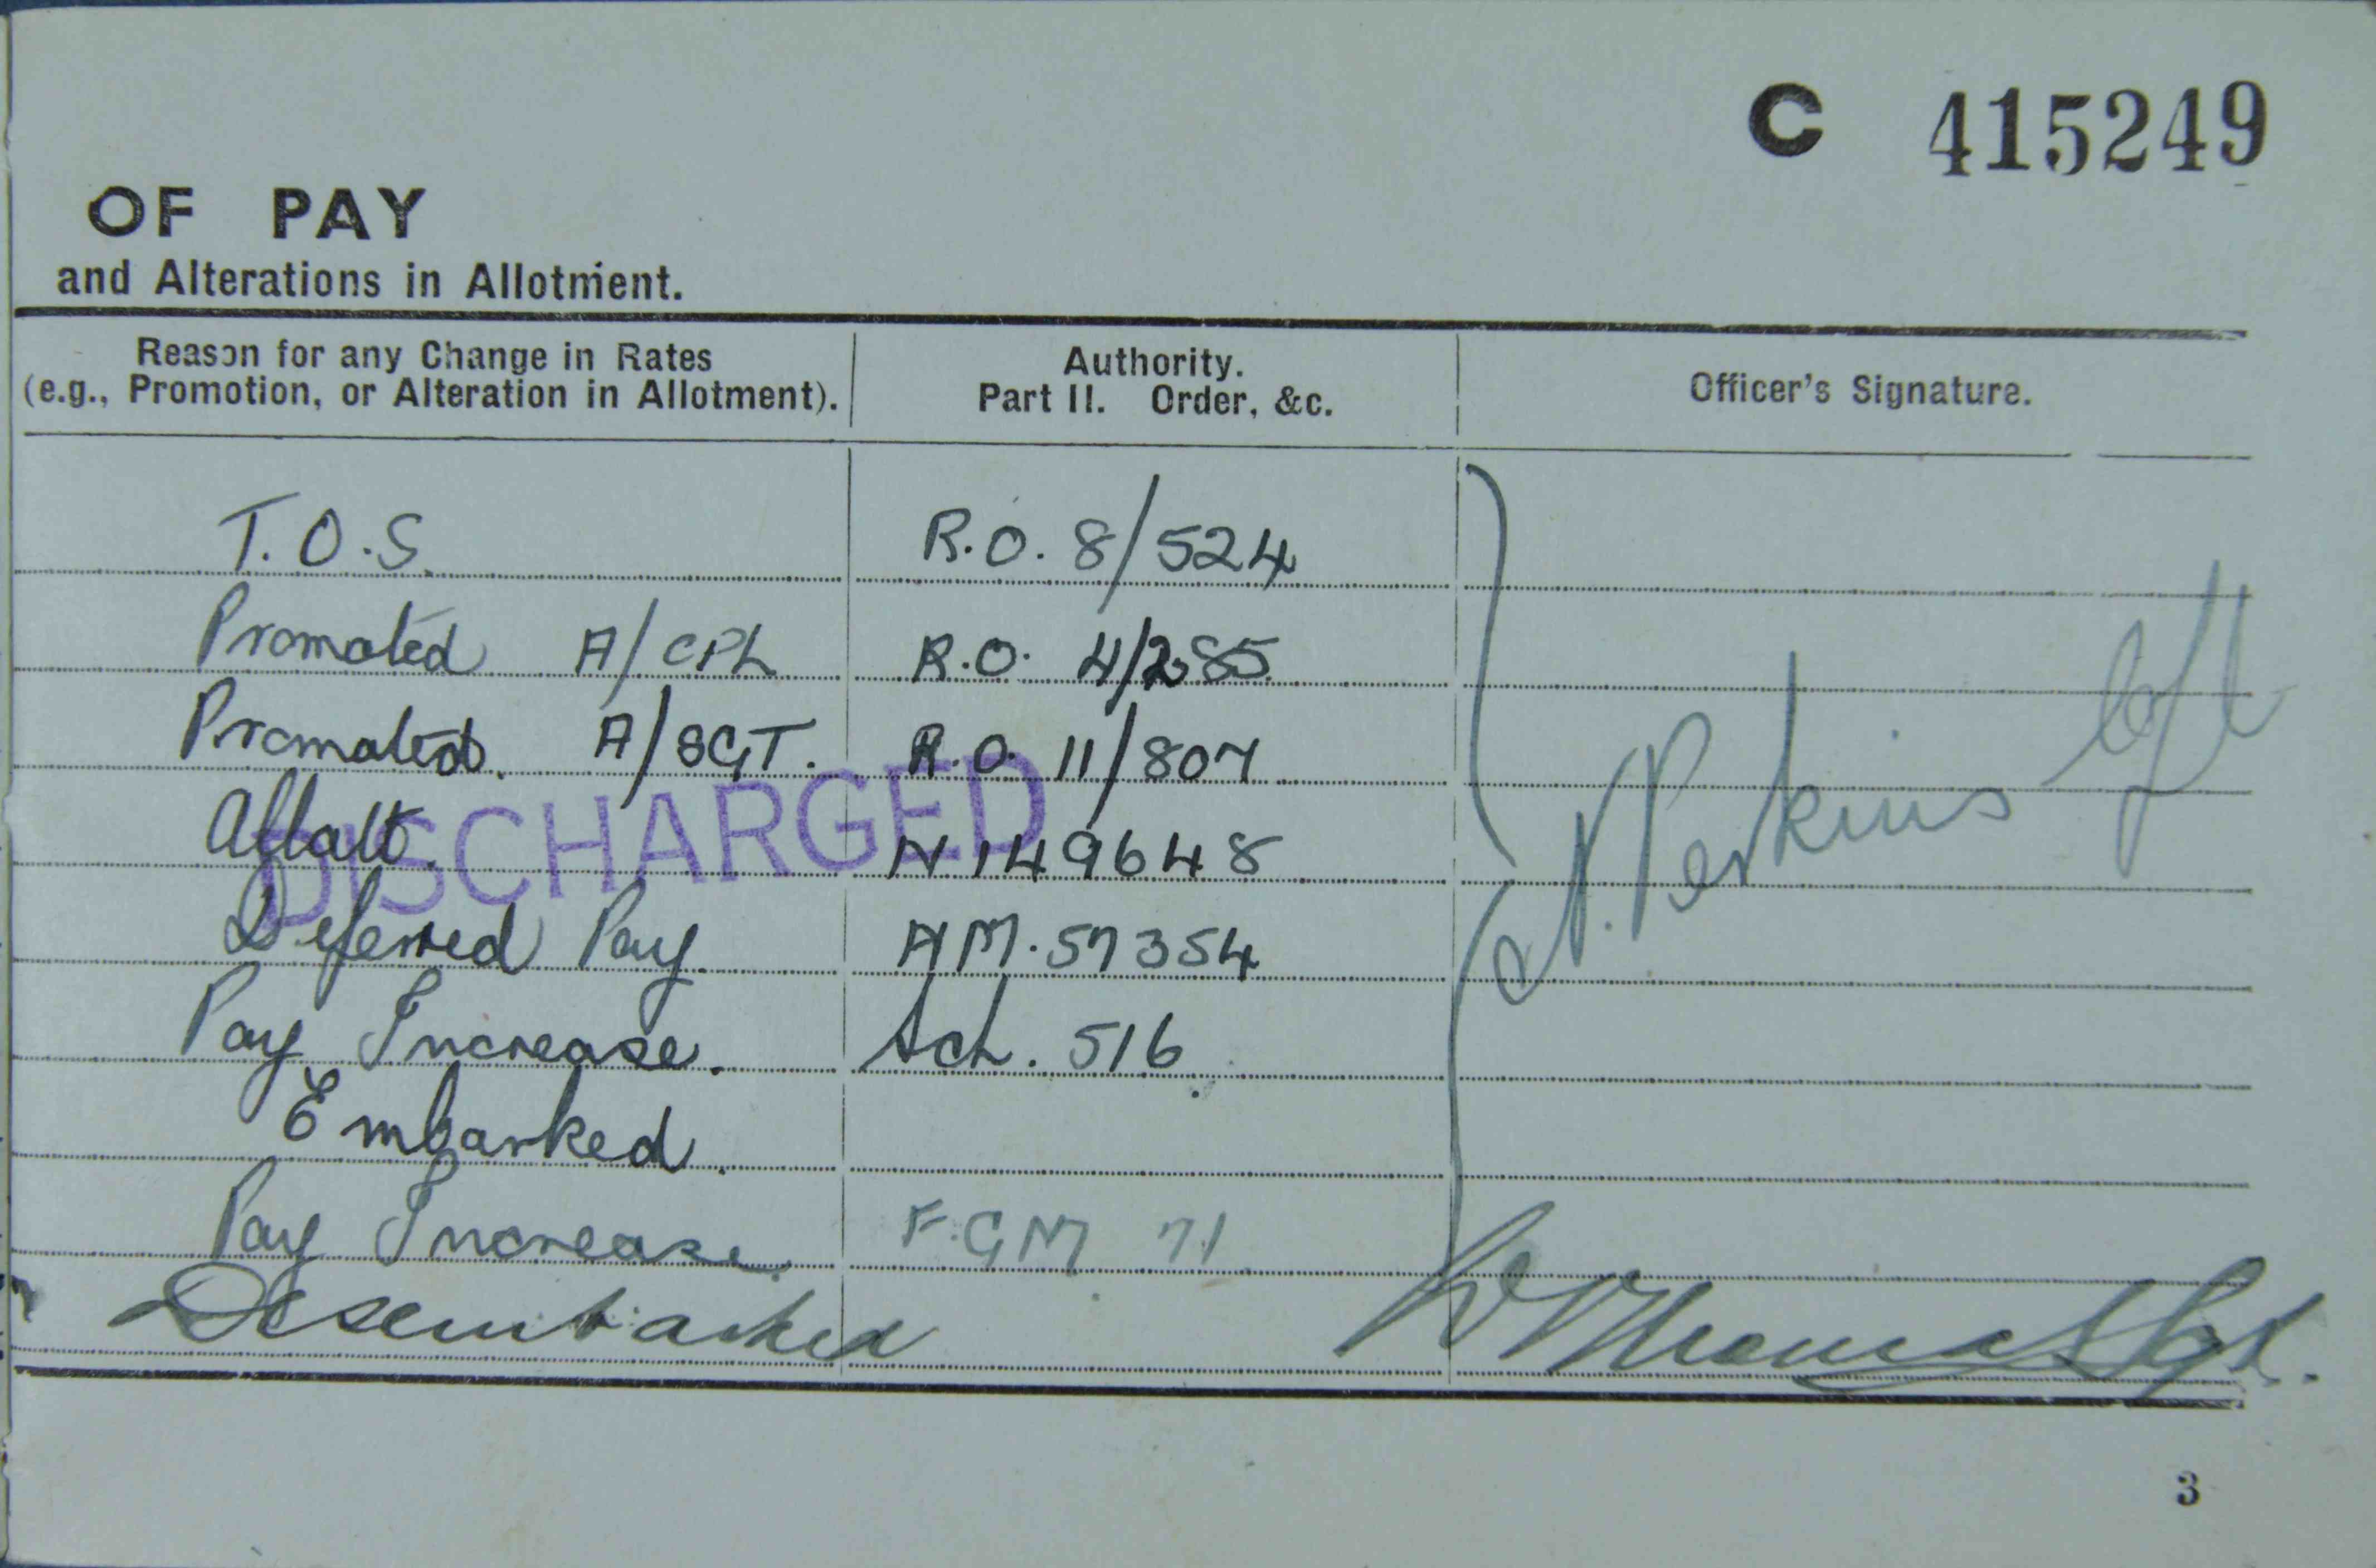 C 415249
OF PAY
and Alterations in Allotment.
Reason for any Change in Rates
(e.g., Promotion, or Alteration in Allotment).
Authority.
Part II. Order, &c.
Officer's Signature.
T.O.S. R.O. 8/524
Promoted A/CPL R.O. 4/285
Promoted. A/SGT. R.O. 11/807
Allott. N149648
DISCHARGED
Deferred Pay AM.57354
N. Perkins
Pay Increase. Sch. 516
Embarked.
Pay Increase. F.G.M 71
Disembarked Sgt.
3